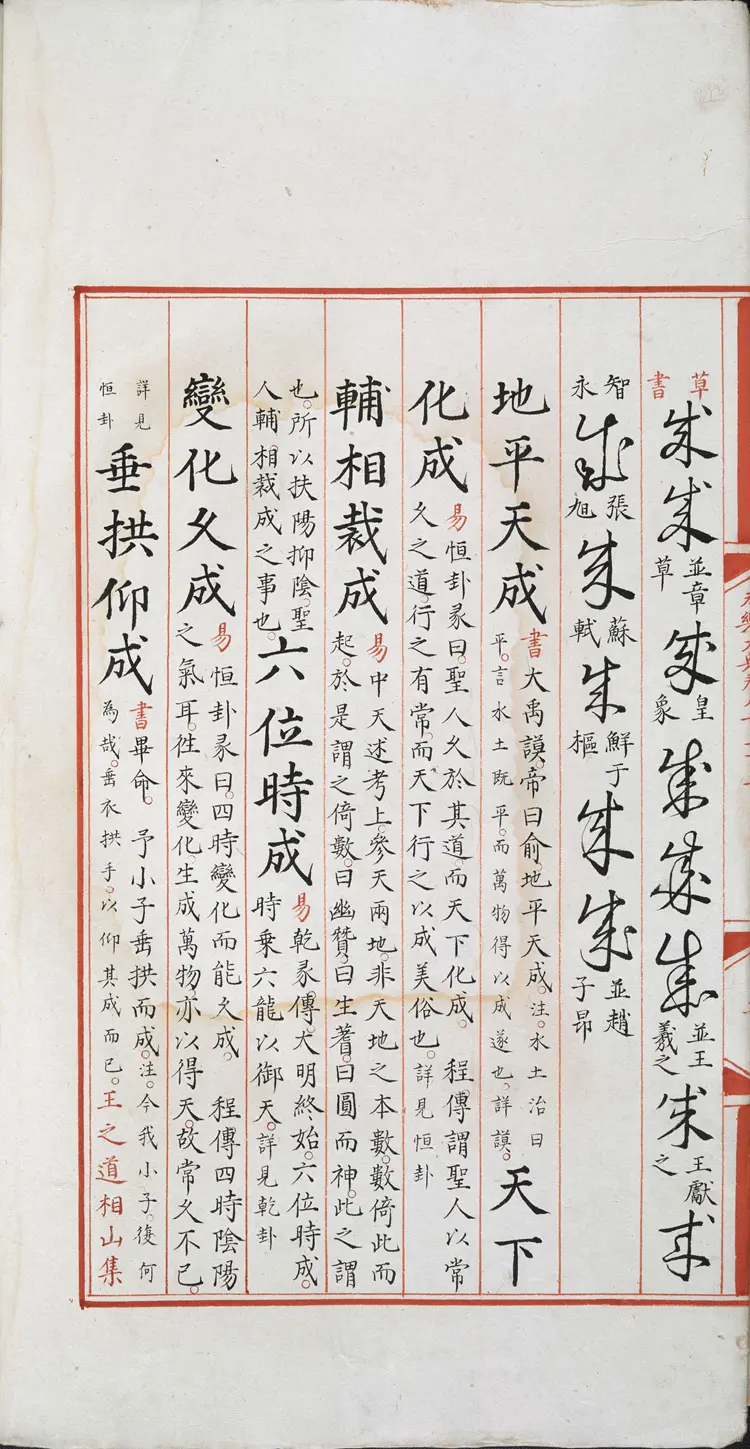 草書 成成 並章草 成 皇象 成成成 並王羲之 成 王獻之 成
智永 成 張旭 成 蘇軾 成 鮮于樞 成成 並趙子昂
地平天成 書大禹謨。帝曰俞。地平天成。注。水土治曰平。言水土既平。而萬物得以成遂也。詳謨。天下
化成 易恒卦彖曰。聖人久於其道。而天下化成。 程傳謂聖人以常久之道。行之有常。而天下行之以成美俗也。詳見恒卦
輔相裁成 易中天述考上。參天兩地。非天地之本數。數倚此而起。於是謂之倚數。曰幽贊。曰生蓍。曰圓而神。此之謂
也。所以扶陽抑陰。聖人輔相裁成之事也。六位時成 易乾彖傳。大明終始。六位時成。時乘六龍以御天。詳見乾卦
變化久成 易恒卦彖曰。四時變化而能久成。 程傳四時陰陽之氣耳。徃來變化。生成萬物。亦以得天。故常久不已。
詳見恒卦 垂拱仰成 書畢命。予小子垂拱而成。注。今我小子。復何為哉。垂衣拱手。以仰其成而已。王之道相山集